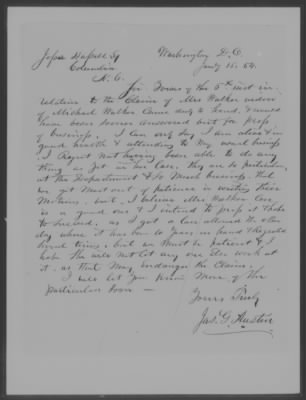 Jesse Haskell Esq Washington D.C.
Columbia July 15. 54.
N.C.
Sir Yours of the 5th inst in
relation to the Claim of Mrs Walker widow
of Michael Walker Came duly to hand, & would
have been sooner answered but for press
of business. I Can only say I am alive & in
good health & attending to my usual business
I Regret not having been able to do any
thing as yet in this Case. They are so particular
at the Department & so Much business that
we get most out of patience in waiting their
Motions, but I believe Mrs Walker Case
is a good one & I intend to press it & hope
to succeed. as I got a Case allowed the other
day where it has been 10 years in hand & rejected
several times, but we Must be patient & I
hope she will not let any one else work at
it. as that May endanger the Claim.
I will let you know More of the
particulars soon —
Yours Truly
Jas. G. Austin